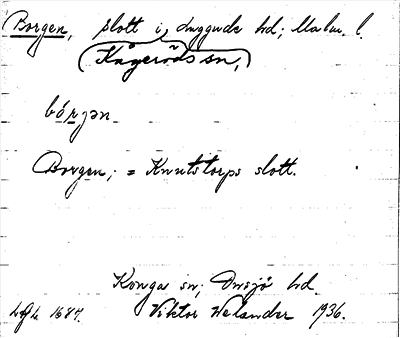 Borgen, slott i Luggude hd; Malm. l.
Kågeröds sn,
bórjən
Borgen; = Knutstorps slott.
Konga sn; Onsjö hd.
Viktor Welander 1936.